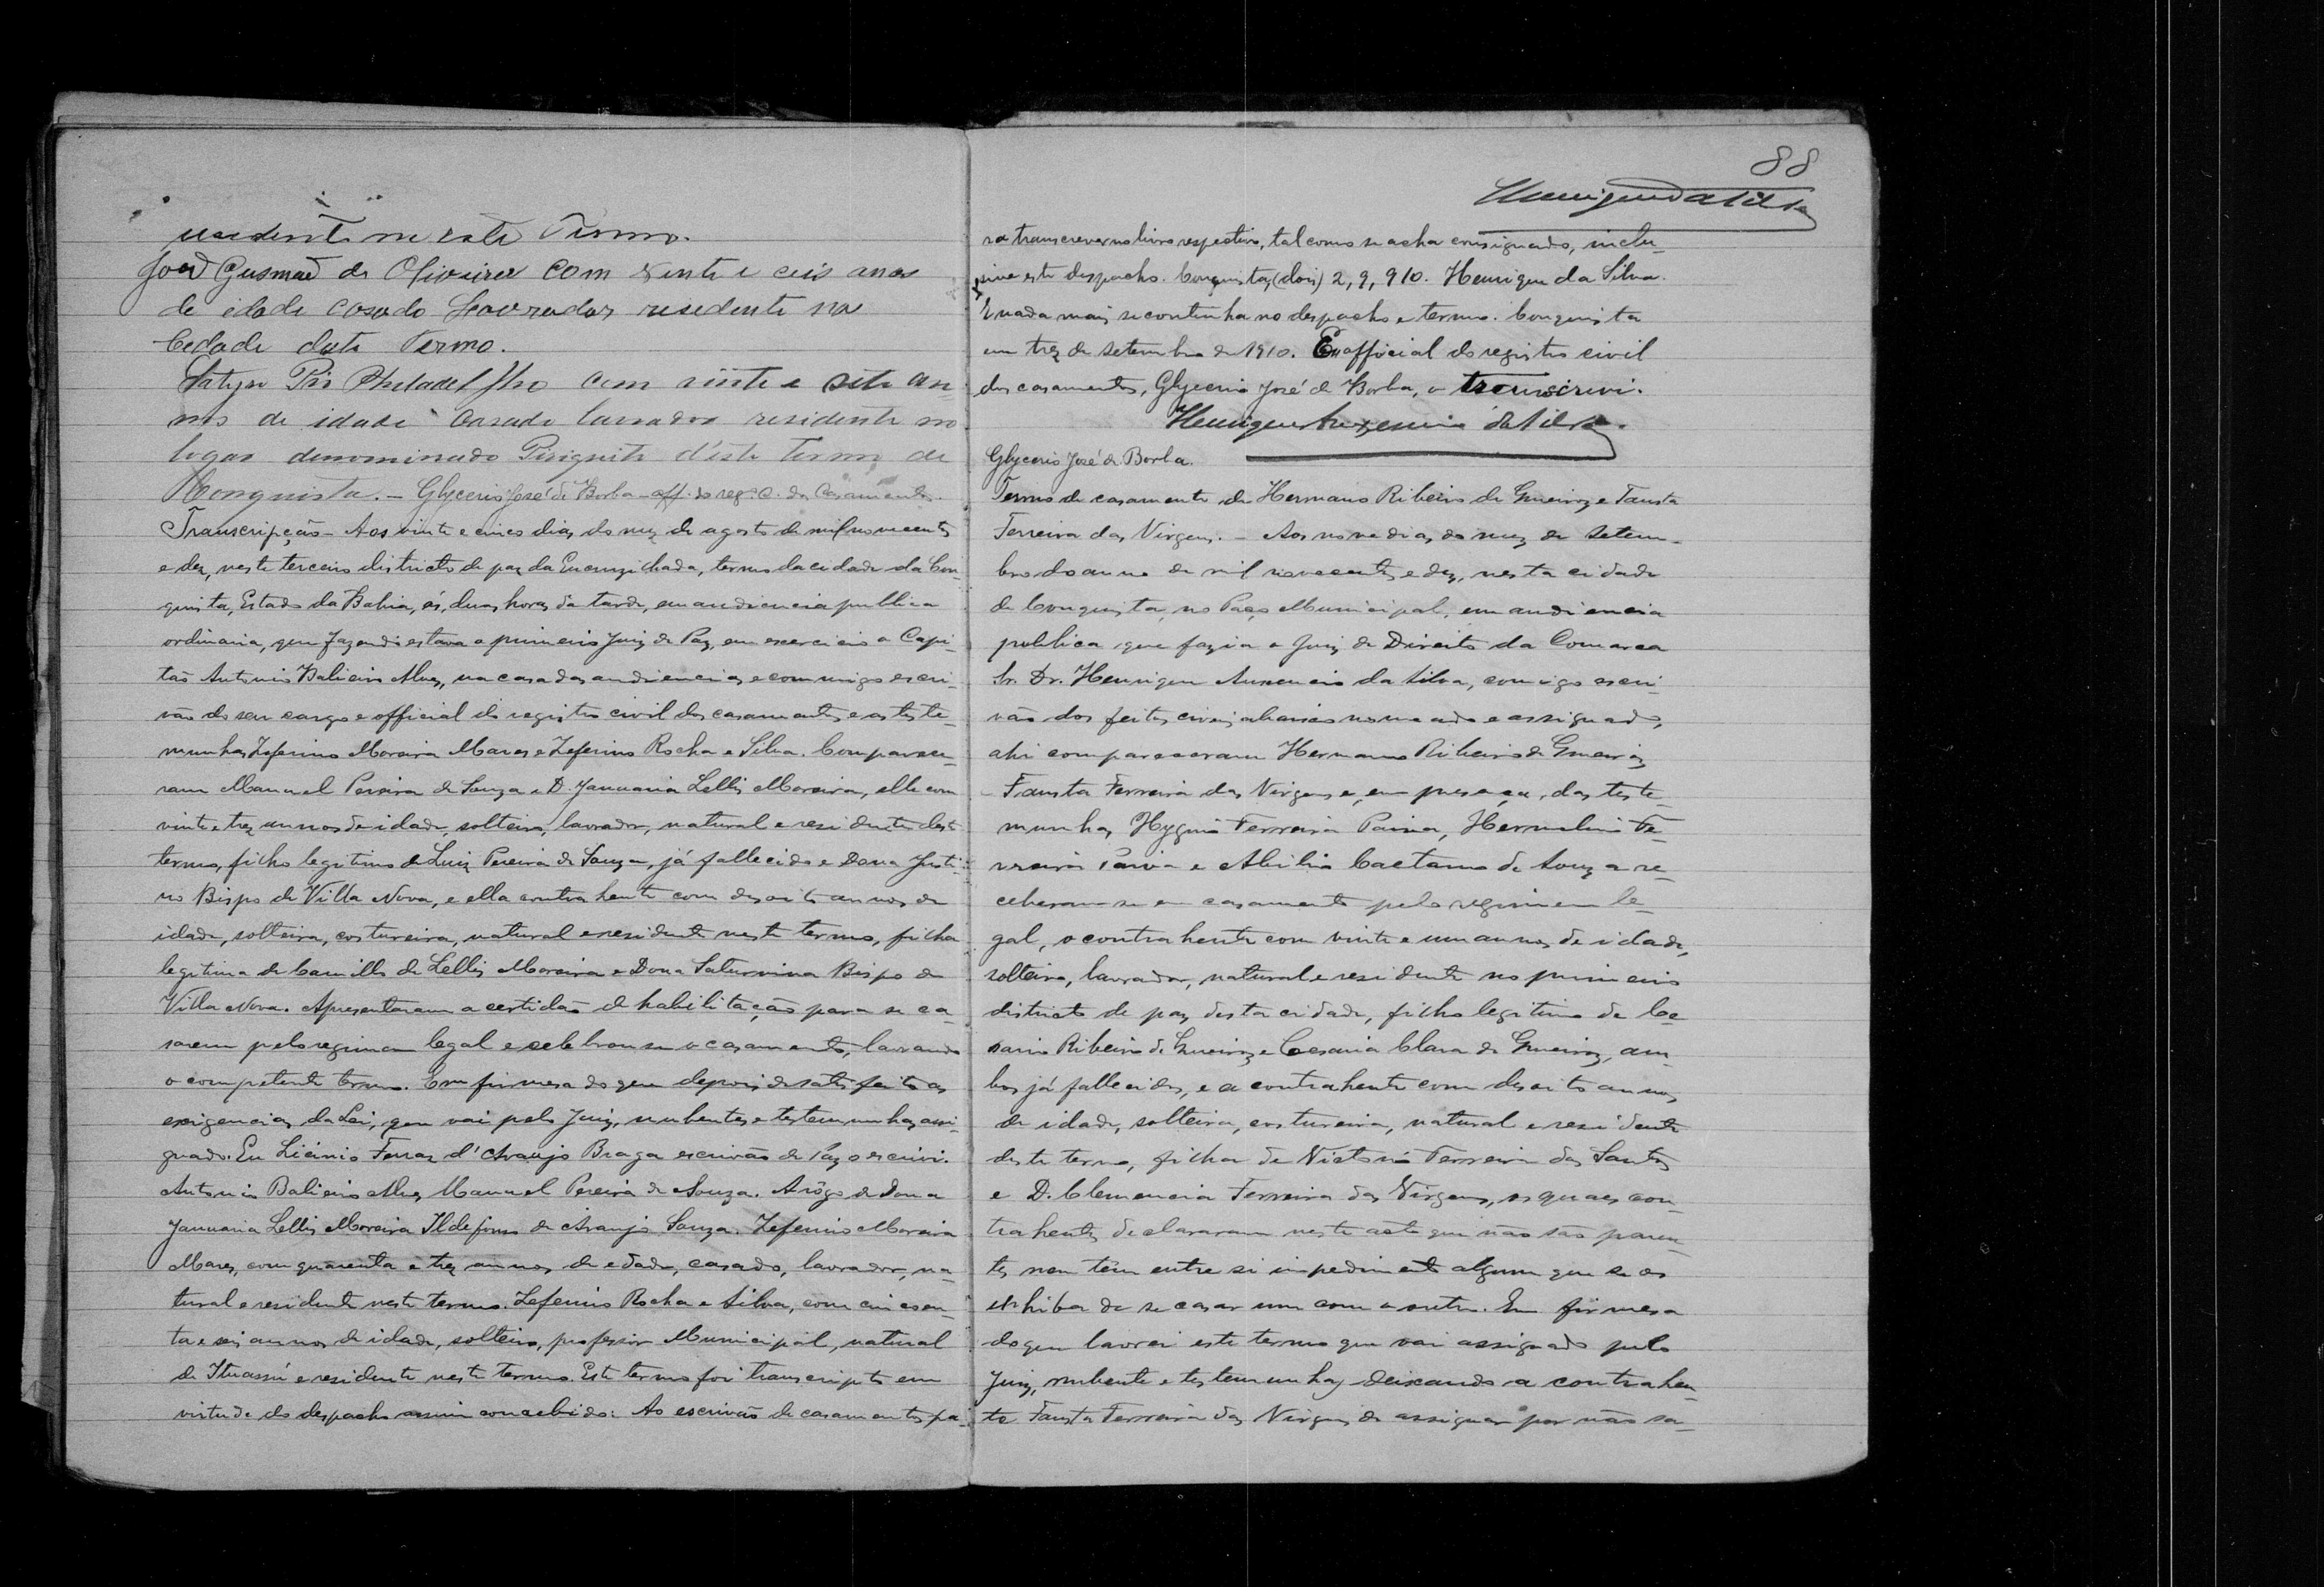 residente neste Termo.
João Gusmão de Oliveira com vinte e ceis anos
de idade cosado Lavrador resedente na
Cedade deste Termo.
Satyro Pires Philadelpho com vinte e sete an-
nos de idade casado lavrador residente no
logar denominado Piriquito d'este termo de
Conquista. - Glycerio José de Borba - off. do reg. C. dos Casamentos.
Transcripção - Aos vinte e cinco dias do mez de agosto de mil novecentos
e dez, neste terceiro districto de paz da Encruzilhada, termo da cidade da Con-
quista, Estado da Bahia, ás duas horas da tarde, em audiencia publica
ordinaria, que fazendo estava o primeiro Juiz de Paz, em exercicio o Capi-
tão Antonio Balieiro Alves, na casa das audiencias, e commigo escri-
vão do seu cargo e official do registro civil dos casamentos, e as teste-
munhas Zeferino Moreira Mares e Zeferino Rocha e Silva. Comparece-
ram Manuel Pereira de Souza e D. Januaria Lellis Moreira, elle com
vinte e trez annos de idade, solteiro, lavrador, natural e residente deste
termo, filho legitimo de Luiz Pereira de Souza, já fallecido e Dona Justi-
no Bispo de Villa Nova, e ella contrahente com desoito annos de
idade, solteira, costureira, natural e residente neste termo, filha
legitima de Camillo de Lellis Moreira e Dona Saturnina Bispo de
Villa Nova. Apresentaram a certidão de habilitação para se ca-
sarem pelo regimen legal e celebrou-se o casamento, lavrando
o competente termo. Em firmesa do que depois de satisfeito as
exigencias da Lei, que vai pelo Juiz, nubentes e testemunhas assi-
gnado. Eu Licinio Ferraz d'Araujo Braga escrivão de Paz o escrivi.
Antonio Balieiro Alves, Manuel Pereira de Souza. A rôgo de Dona
Januaria Lellis Moreira Ildefonso de Araujo Souza. Zeferino Moreira
Mares, com quarenta e trez annos de edade, casado, lavrador, na-
tural e residente neste termo. Zeferino Rocha e Silva, com cincoen-
ta e seis annos de idade, solteiro, professor Municipal, natural
de Ituassú e residente neste termo. Este termo foi transcripto em
virtude do despacho assim concebido: Ao escrivão de casamentos pa-
88
Henrique da Silva
ra transcrever no livro respectivo, tal como se acha consignado, inclu-
sive este despacho. Conquista, (dois) 2, 9, 910. Henrique da Silva.
E nada mais se continha no despacho e termo. Conquista
em trez de setembro de 1910. Eu official do registro civil
dos casamentos, Glycerio José de Borba, o transcrevi.
Henrique Auxencio da Silva.
Glycerio José de Borba.
Termo de casamento de Hermano Ribeiro de Gueiroz e Fausta
Ferreira das Virgens. - Aos nove dias do mez de Setem-
bro do anno de mil novecentos e dez, nesta cidade
de Conquista, no Paço Municipal, em audiencia
publica que fazia o Juiz de Direito da Comarca
Sr. Dr. Henrique Auxencio da Silva, comigo escri-
vão dos feitos civeis abaixo nomeado e assignado,
ahi compareceram Hermano Ribeiro de Gueiroz
Fausta Ferreira das Virgens e, em presença, das teste-
munhas Hygino Ferreira Paiva, Hermelino Fe-
rreira Paiva e Abilio Caetano de Souza re-
ceberam-se em casamento pelo regimen le-
gal, o contrahente com vinte e um annos de idade,
solteiro, lavrador, natural e residente no primeiro
districto de paz desta cidade, filho legitimo de Ce-
sario Ribeiro de Gueiroz e Cesaria Clara de Gueiroz, am-
bos já fallecidos, e a contrahente com desoito annos
de idade, solteira, costureira, natural e residente
deste termo, filha de Victorio Ferreira dos Santos
e D. Clemencia Ferreira das Virgens, os quaes con-
trahentes declararam neste acto que não são paren-
tes nem têm entre si impedimento algum que se os
exhiba de se casar um com o outro. Em firmesa
do que lavrei este termo que vai assignado pelo
Juiz, nubente e testemunhas deixando a contrahen-
te Fausta Ferreira das Virgens de assignar por não sa-